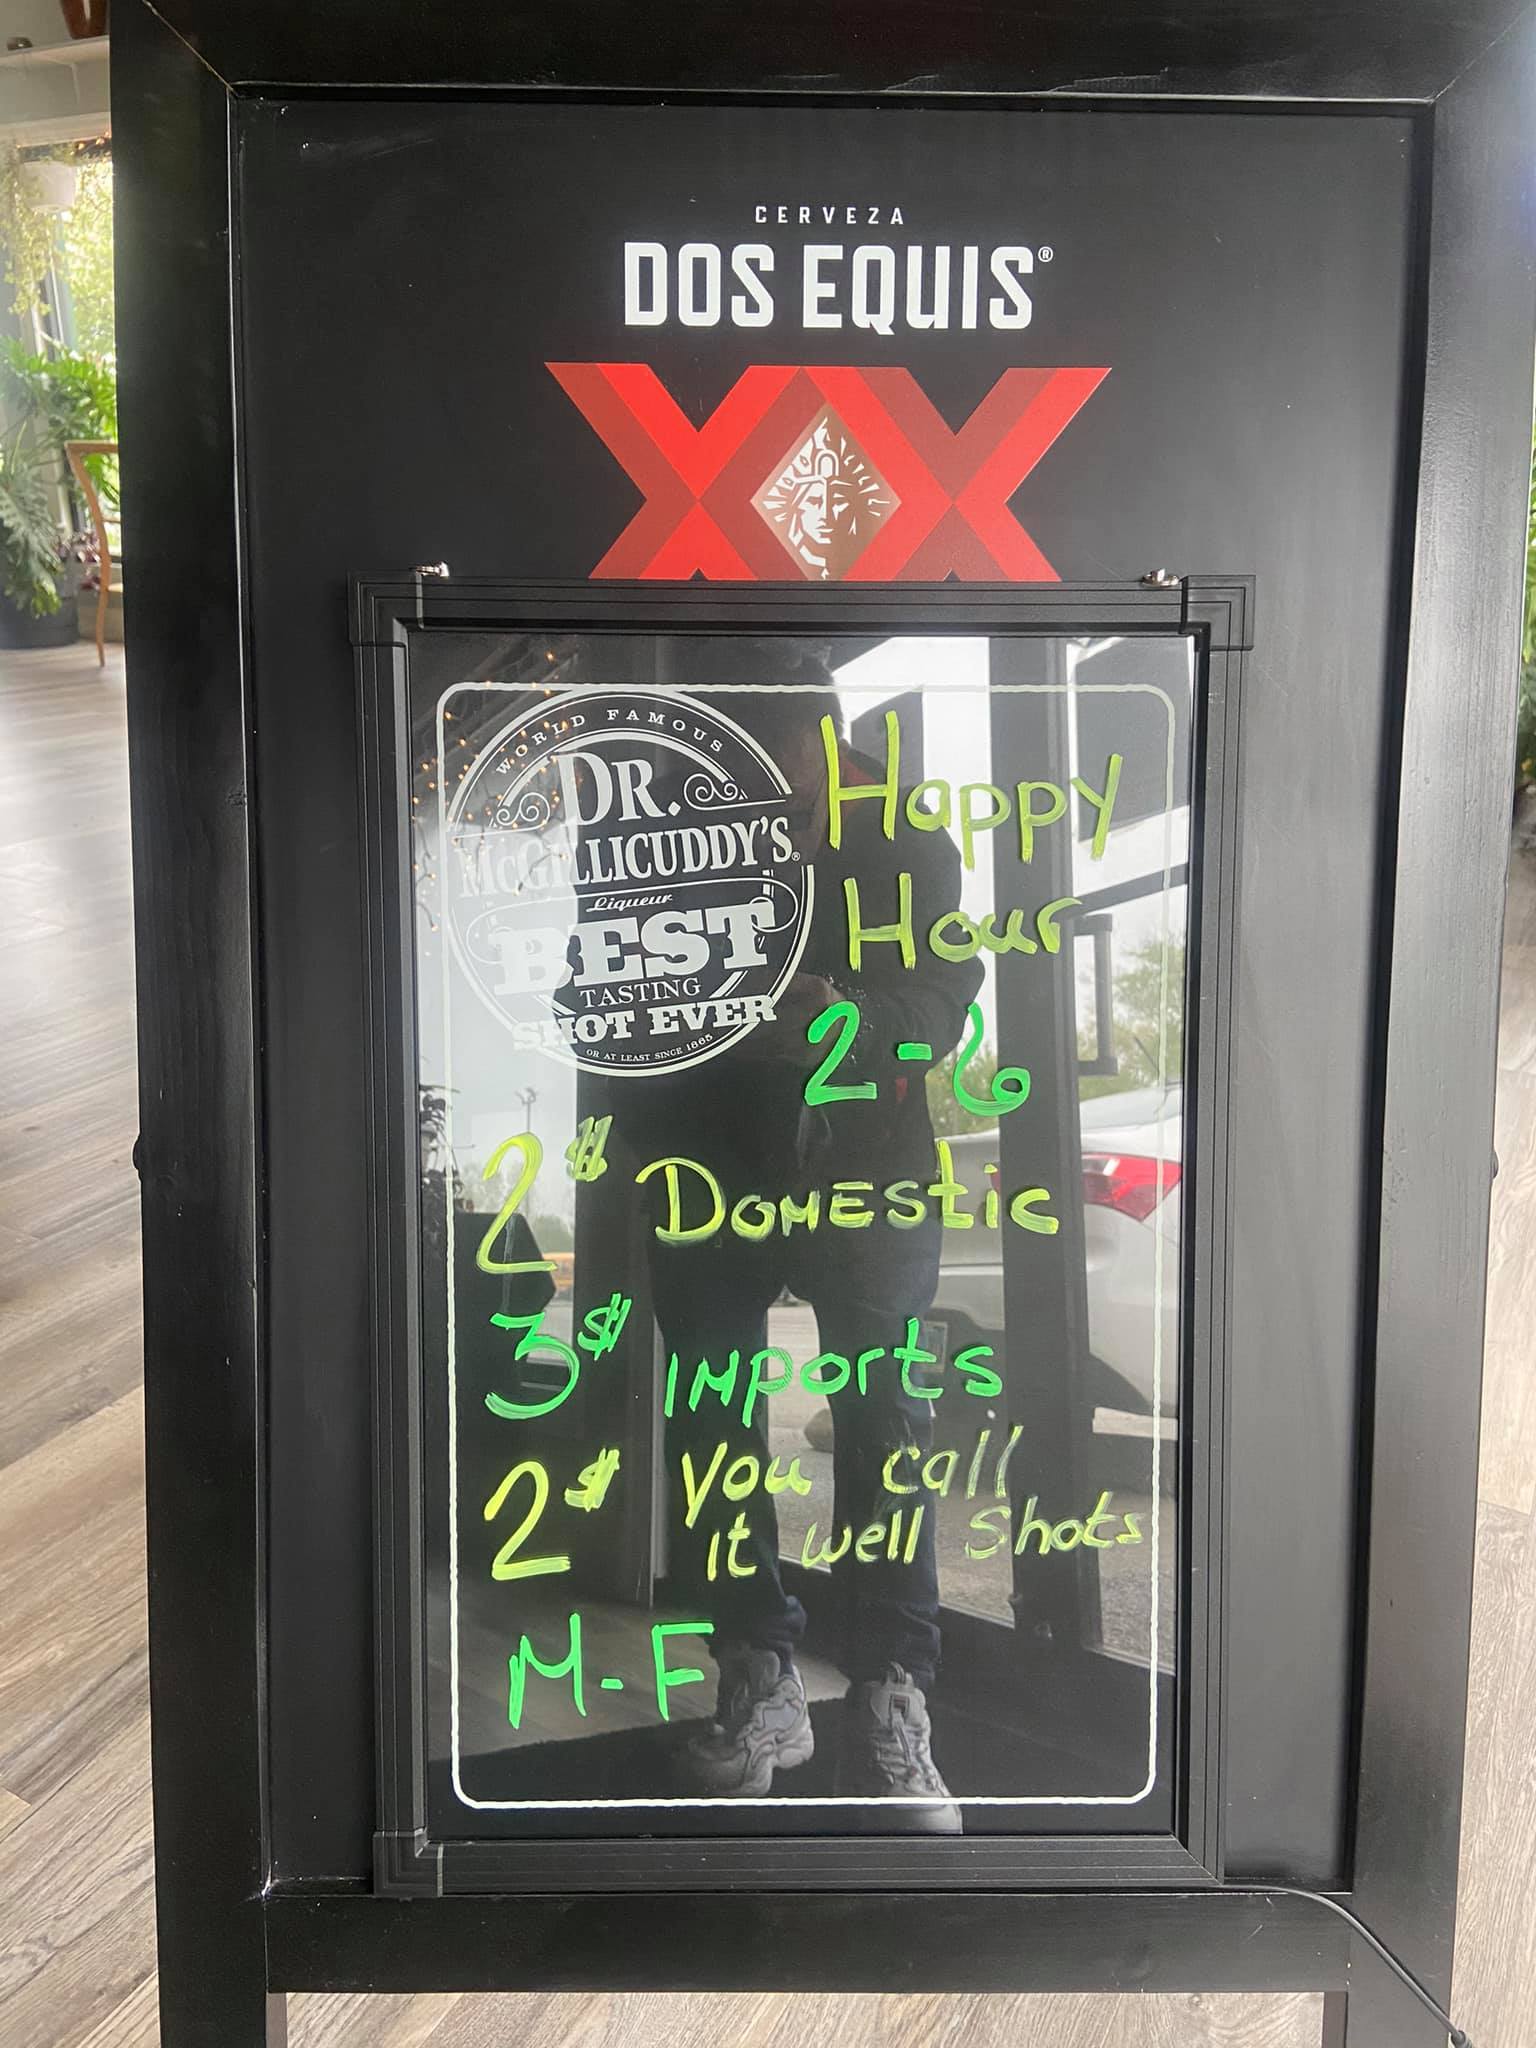 CERVEZA
DOS EQUIS®
XX
WORLD FAMOUS
DR.
MCGILLICUDDY'S®
Liqueur
BEST
TASTING
SHOT EVER
OR AT LEAST SINCE 1865
Happy
Hour
2-6
2$ Domestic
3$ imports
2$ You call
it well shots
M-F